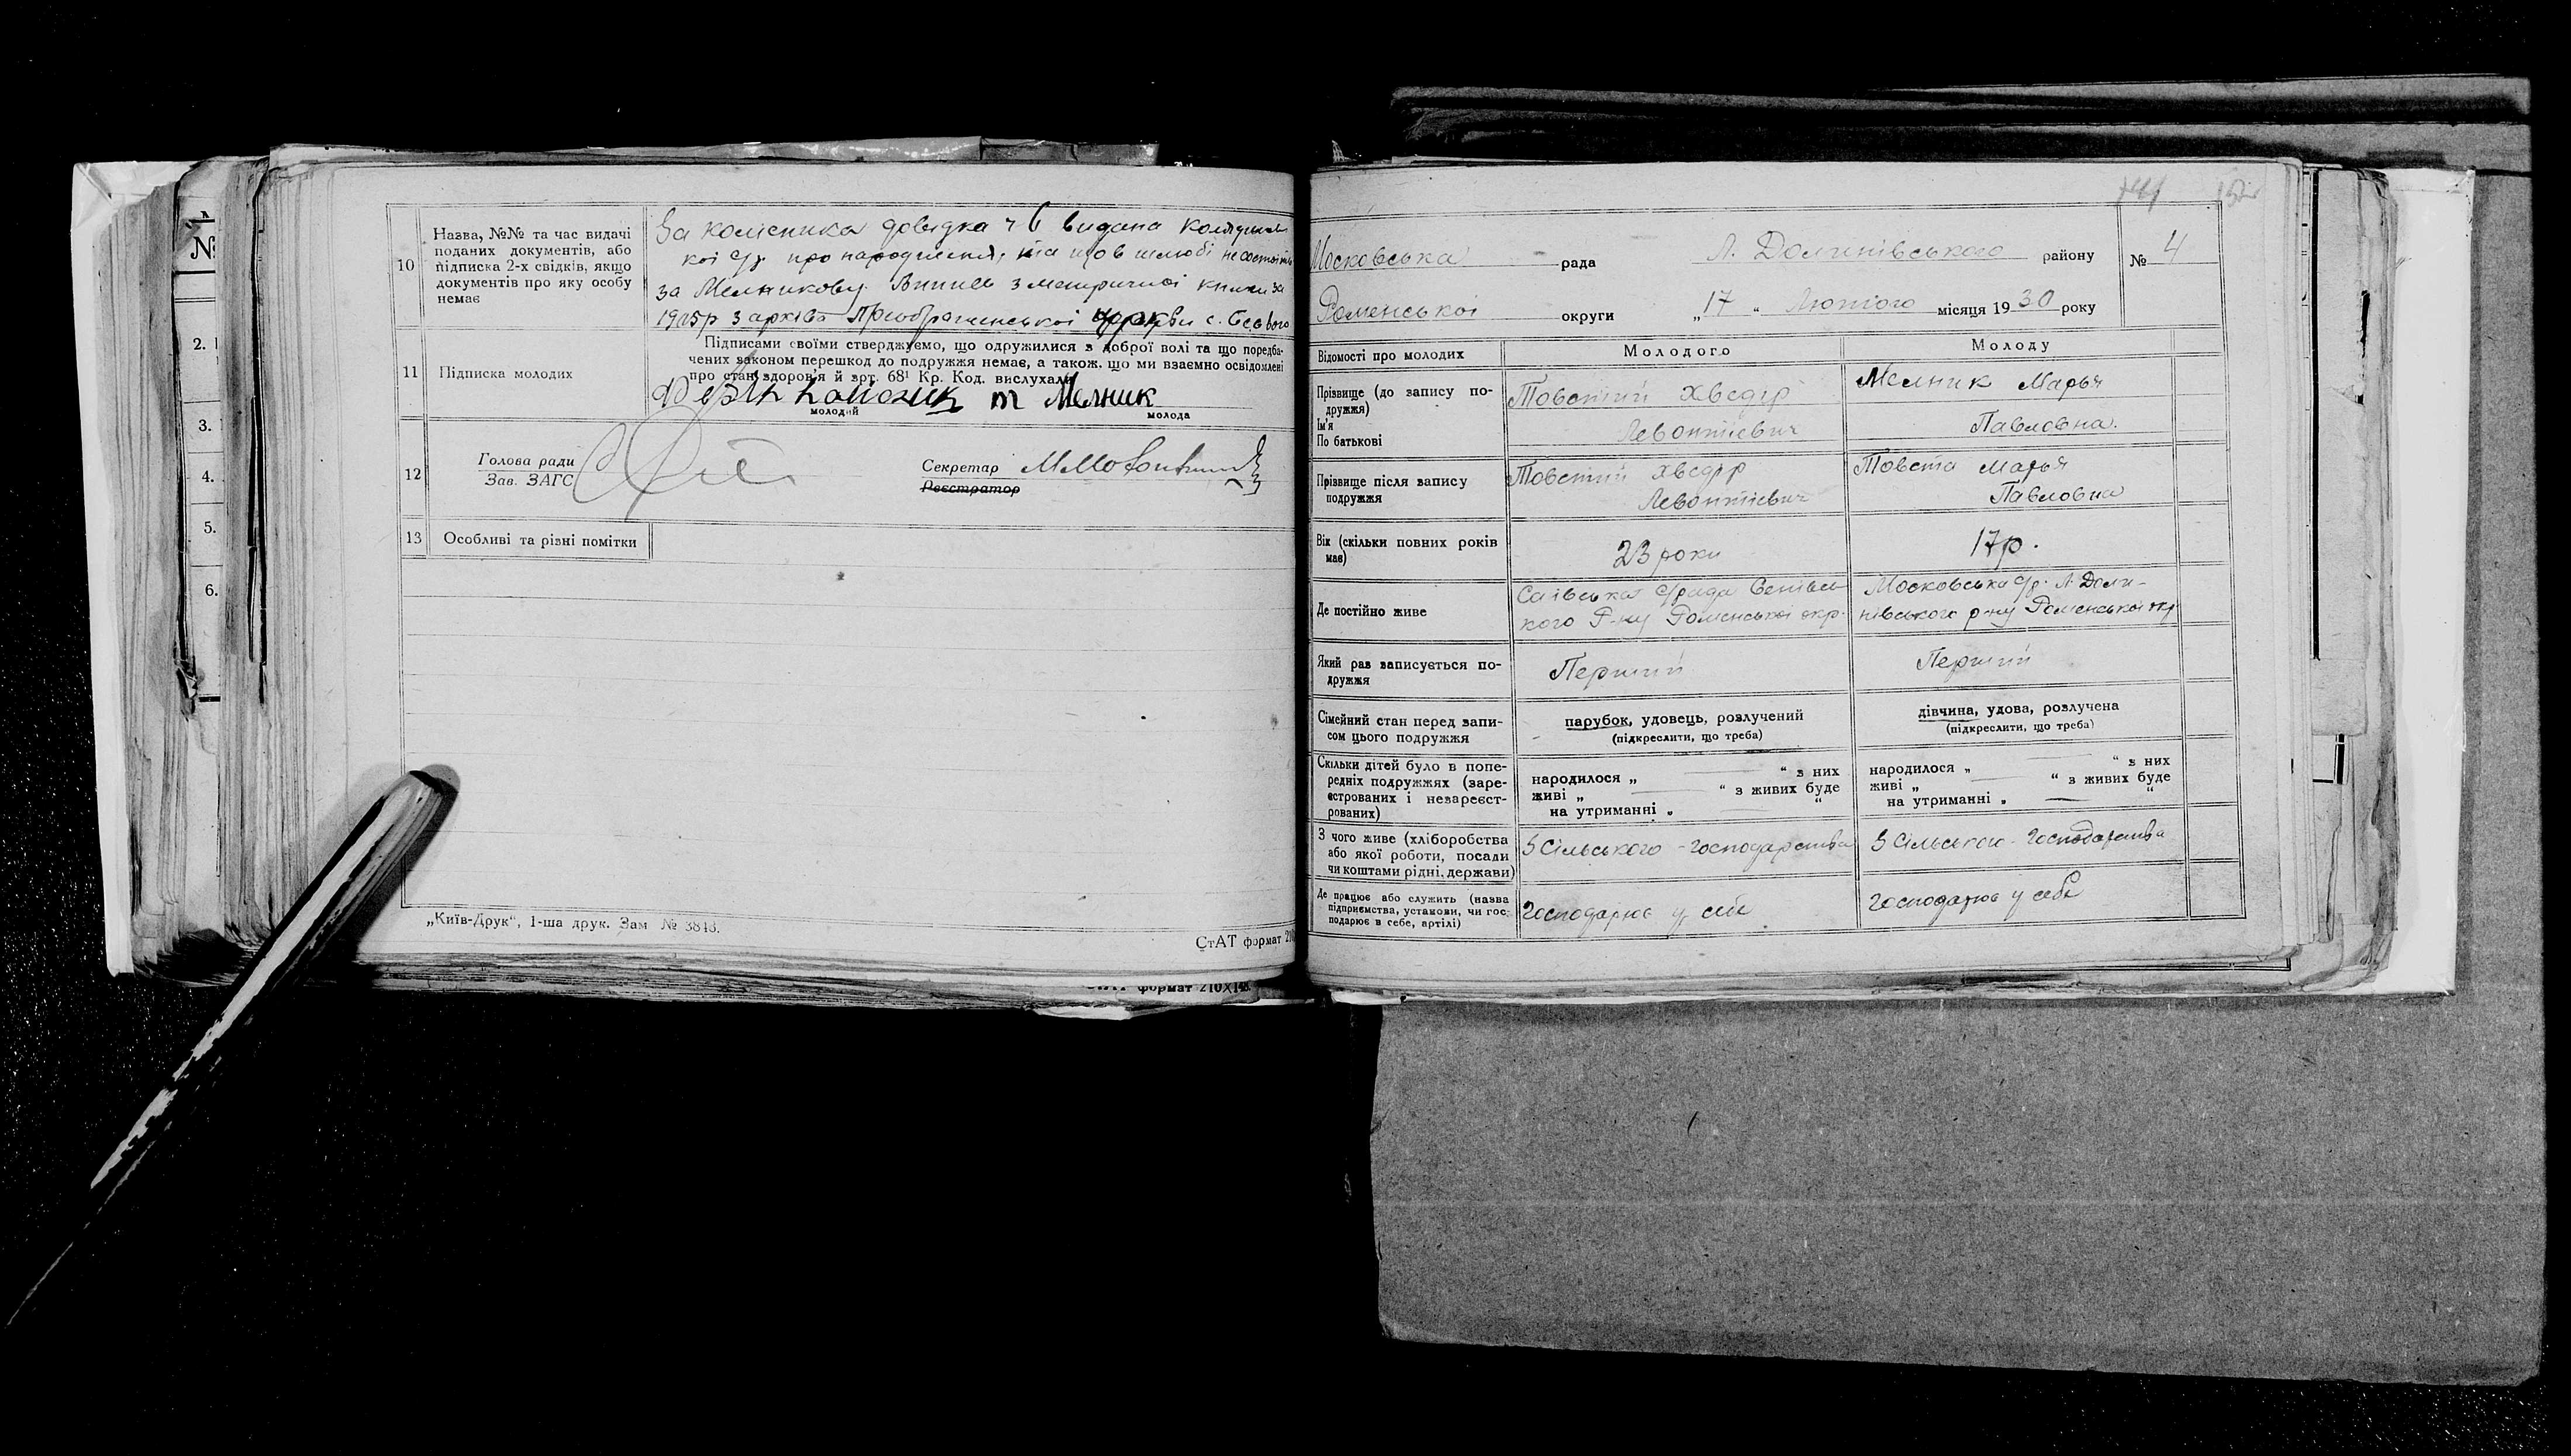 №
2.
3.
4.
5.
6.
10
Назва, №№ та час видачі
поданих документів, або
підписка 2-х свідків, якщо
документів про яку особу
немає
За Колісника довідка ч 6 видана
кої с/р. про народження, та що в шлюбі не состоїть
за Мельникову Випись з метричної книги за
1905р з архіва Преображенської церкви с.
11
Підписка молодих
Підписами своїми стверджуємо, що одружилися з доброї волі та що передба-
чених законом перешкод до подружжя немає, а також, що ми взаємно освідомлені
про стан здоров'я й арт. 68¹ Кр. Код. вислухали
М Мелник
молодий
молода
12
Голова ради
Зав. ЗАГС
Секретар
Реєстратор
13
Особливі та різні помітки
„Київ-Друк", 1-ша друк. Зам № 3848.
СтАТ формат 210
формат 210X148.
Московська рада
Л. Долинівського району
№ 4
Роменської округи
„17" Лютого місяця 1930 року
Відомості про молодих
Молодого
Молоду
Прізвище (до запису по-
дружжя)
Ім'я
По батькові
Товстий Хведір
Левонтієвич
Мелник Марья
Павловна.
Прізвище після запису
подружжя
Товстий Хведір
Левонтієвич
Товста Марья
Павловна
Вік (скільки повних років
має)
23 роки
17р.
Де постійно живе
Саївська с/рада
кого Р-ну Роменської окр.
Московська с/р. Л. Доли-
нівського р-ну Роменської окр
Який раз записується по-
дружжя
Перший
Перший
Сімейний стан перед запи-
сом цього подружжя
парубок, удовець, розлучений
(підкреслити, що треба)
дівчина, удова, розлучена
(підкреслити, що треба)
Скільки дітей було в попе-
редніх подружжях (заре-
єстрованих і незареєст-
рованих)
народилося „ — " з них
живі „ — " з живих буде
на утриманні „ "
народилося „ — " з них
живі „ — " з живих буде
на утриманні „ — "
З чого живе (хліборобства
або якої роботи, посади
чи коштами рідні, держави)
З Сільського - господарства
З Сільського - господарства
Де працює або служить (назва
підприємства, установи, чи гос-
подарює в себе, артілі)
Господарює у себе
Господарює у себе